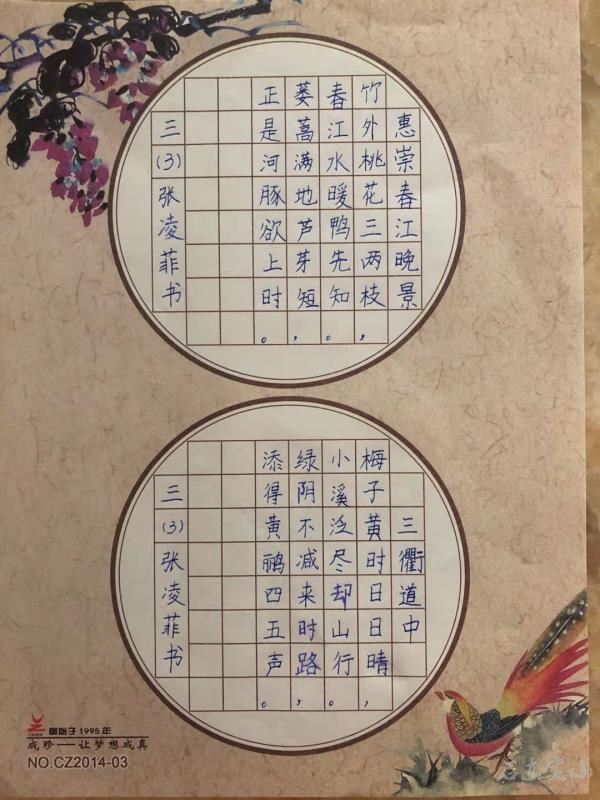 惠崇春江晚景
竹外桃花三两枝，
春江水暖鸭先知。
蒌蒿满地芦芽短，
正是河豚欲上时。
三(3)张凌菲书
三衢道中
梅子黄时日日晴，
小溪泛尽却山行。
绿阴不减来时路，
添得黄鹂四五声。
三(3)张凌菲书
始于1995年
成珍——让梦想成真
NO.CZ2014-03